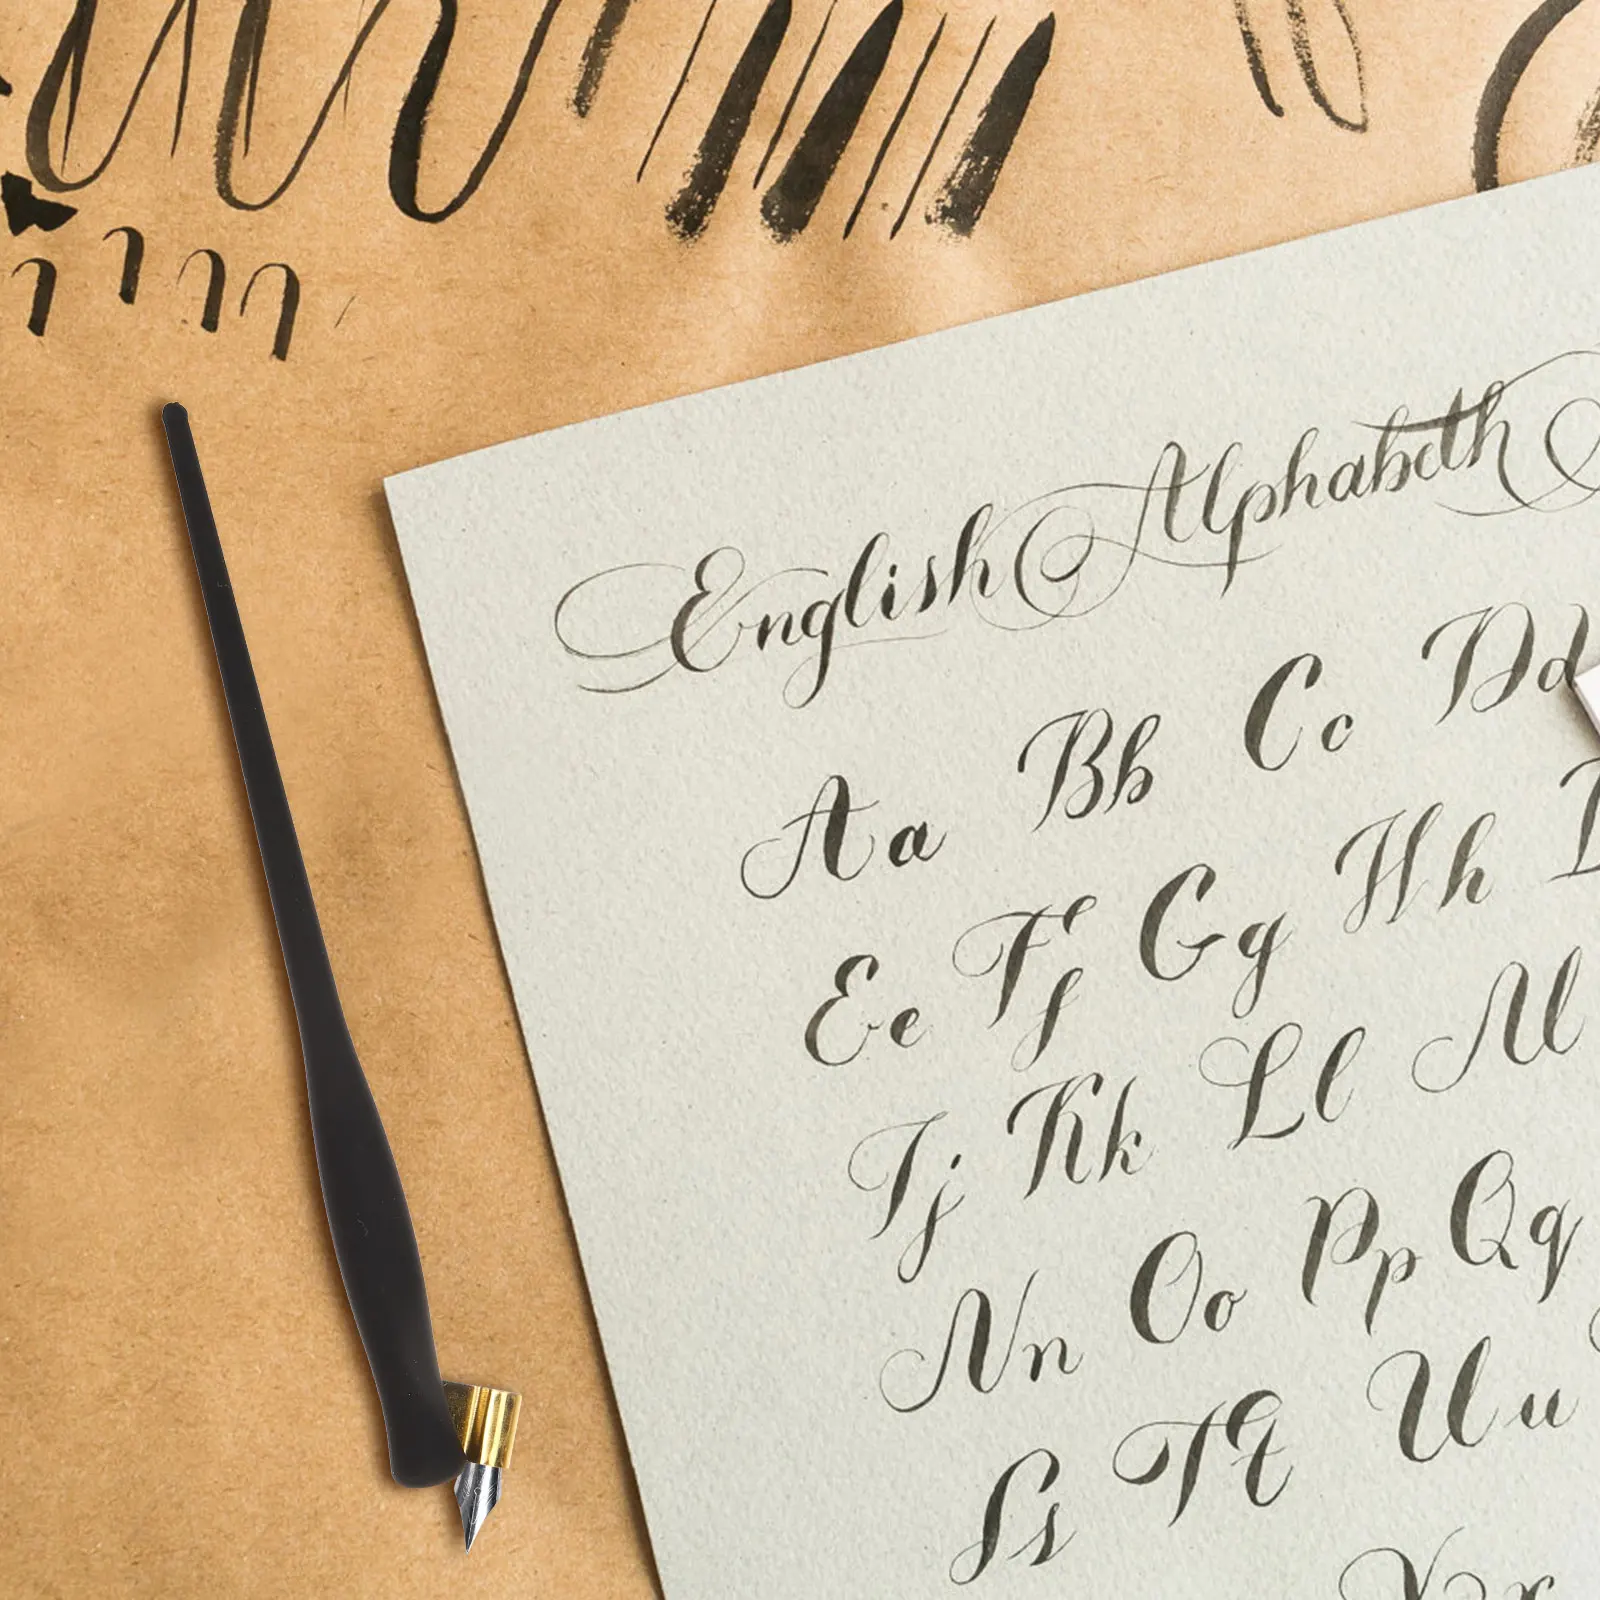 English Alphabeth
Aa Bb Cc Dd
Ee Ff Gg Hh
Jj Kk Ll M
Nn Oo Pp Qq
Ss Tt Uu